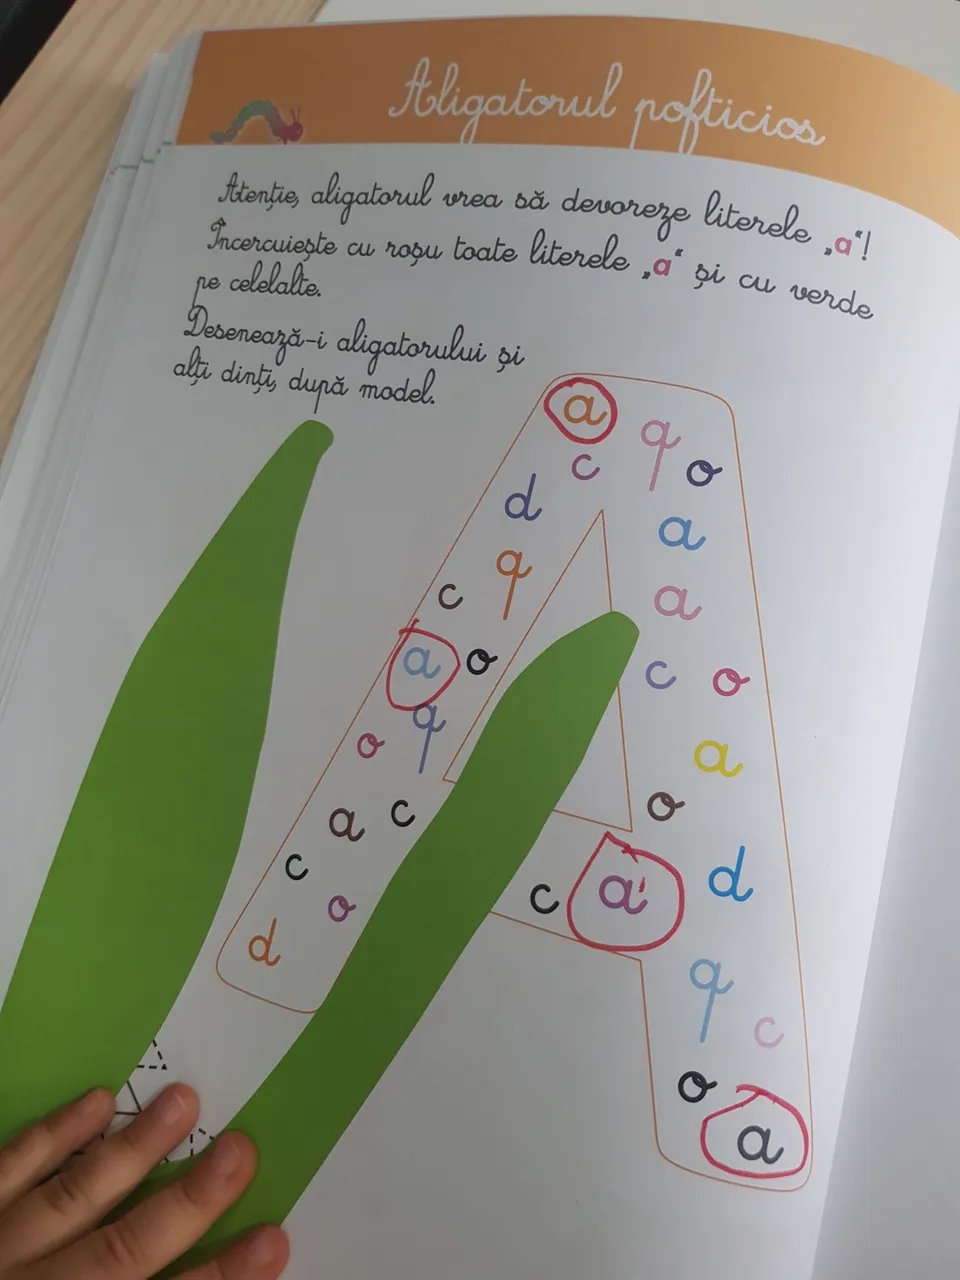 Aligatorul pofticios
Atenție, aligatorul vrea să devoreze literele „a“!
Încercuiește cu roșu toate literele „a“ și cu verde
pe celelalte.
Desenează-i aligatorului și
alți dinți, după model.
a q
c o
d a
q a
c
a o c o
q
o a
a c o
c c a d
o
d q
c
o
a